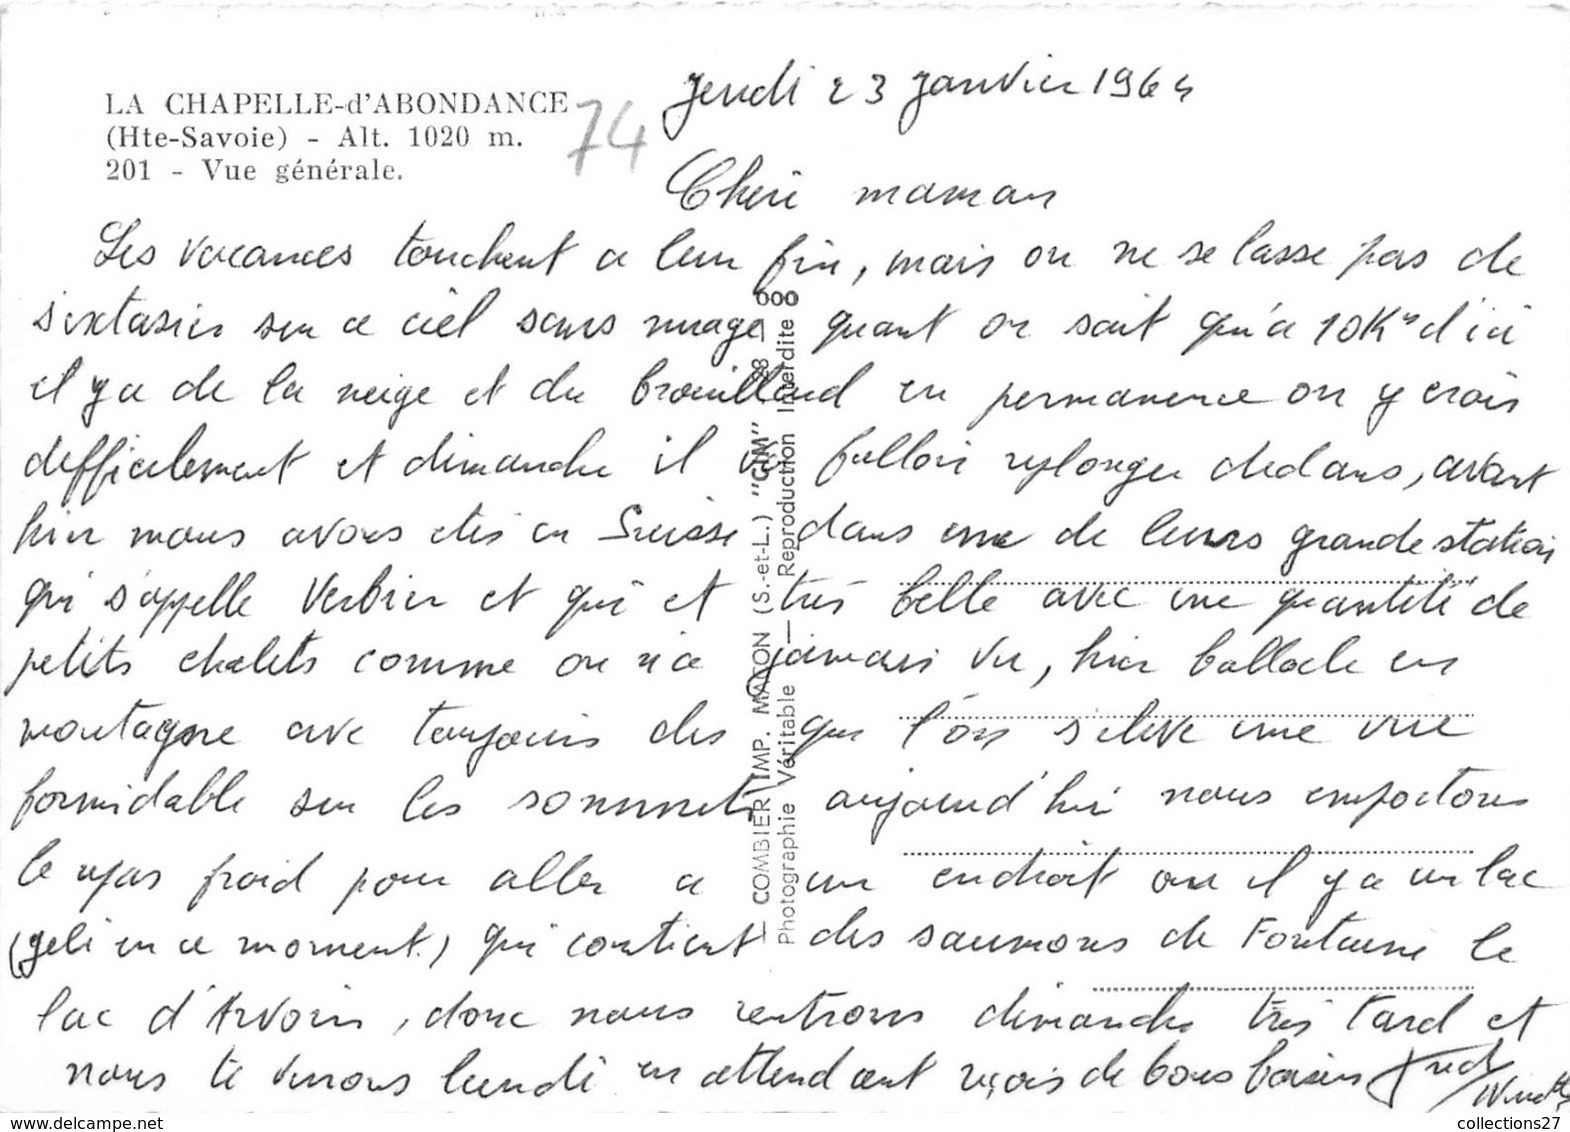 LA CHAPELLE-d'ABONDANCE
(Hte-Savoie) - Alt. 1020 m.
201 - Vue générale.
74
Jeudi 23 Janvier 1964
Chère maman
Les vacances touchent a leur fin, mais on ne se lasse pas de
s'extasier sur ce ciel sans nuage quant on sait qu'a 10Km d'ici
il y a de la neige et du brouillard en permanence on y crois
difficilement et dimanche il va falloir replonger dedans, avant
hier nous avons étés en Suisse dans une de leurs grande station
qui s'appelle Verbier et qui et très belle avec une quantité de
petits chalets comme on n'a jamais vu, hier ballade en
montagne avec toujours des que l'on s'eleve une vue
formidable sur les sommets aujourd'hui nous emportons
le repas froid pour aller a un endroit ou il y a un lac
(gelé en ce moment) qui contient des saumons de Fontaine le
lac d'Arvoin, donc nous rentrons dimanche très tard et
nous te verrons lundi en attendant reçois de bons baisers
COMBIER IMP. MACON (S.-et-L.) "CIM"
Photographie Véritable — Reproduction Interdite
collections27